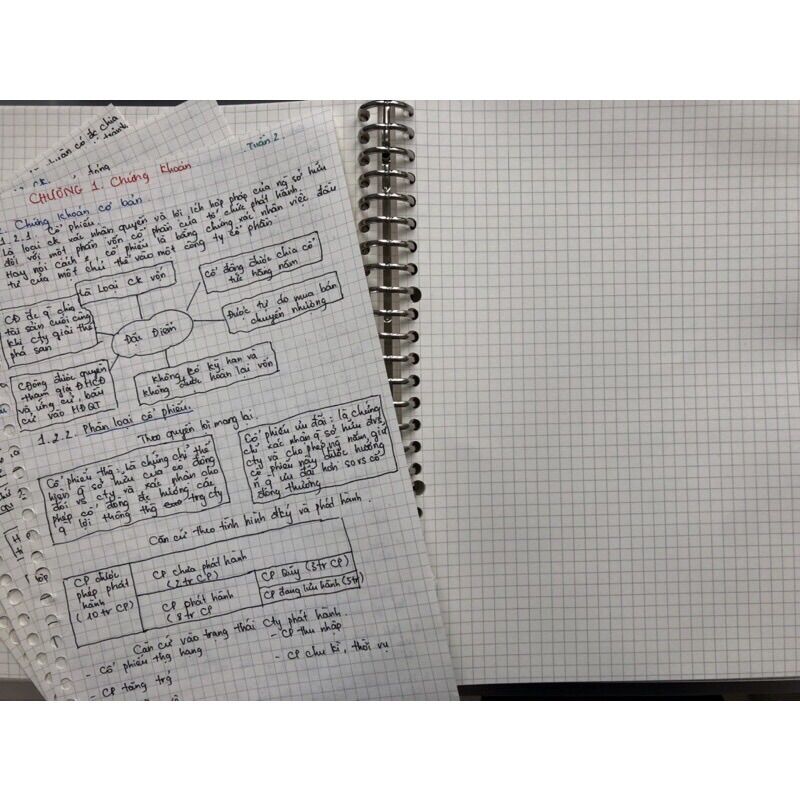 Tuần 2.
CHƯƠNG 1. Chứng khoán
Chứng khoán cơ bản
1.2.1. Cổ phiếu.
Là loại ck xác nhận quyền và lợi ích hợp pháp của ng sở hữu
đối với một phần vốn cổ phần của tổ chức phát hành.
Hay nói cách #, cổ phiếu là bằng chứng xác nhận việc đầu
tư của một chủ thể vào một công ty cổ phần
Là loại ck vốn
Cổ đông được chia cổ
tức hằng năm
CĐ đc q chia
tài sản cuối cùng
khi cty giải thể
phá sản
Đặc Điểm
Được tự do mua bán
chuyển nhượng
CĐông được quyền
tham gia ĐHCĐ
và ứng cử, bầu
cử vào HĐQT
Không có kỳ hạn và
không được hoàn lại vốn
1.2.2. Phân loại cổ phiếu.
Theo quyền lợi mang lại.
Cổ phiếu thg: là chứng chỉ thể
hiện q sở hữu của cổ đông
đối vs cty và xác nhận cho
phép cổ đông đc hưởng các
q lợi thông thg trg cty
Cổ phiếu ưu đãi: là chứng
chỉ xác nhận q sở hữu đvs
cty và cho phép ng nắm giữ
cổ phiếu này được hưởng
n q ưu đãi hơn so vs cổ
đông thường
Căn cứ theo tình hình đký và phát hành.
CP được
phép phát
hành
(10 tr CP)
CP chưa phát hành
(2 tr CP)
CP phát hành
(8 tr CP
CP Qũy (3 tr CP)
CP đang lưu hành (5tr)
Căn cứ vào trạng thái cty phát hành.
- Cổ phiếu thg hạng
- CP thu nhập
- CP tăng trg
- CP chu kì, thời vụ